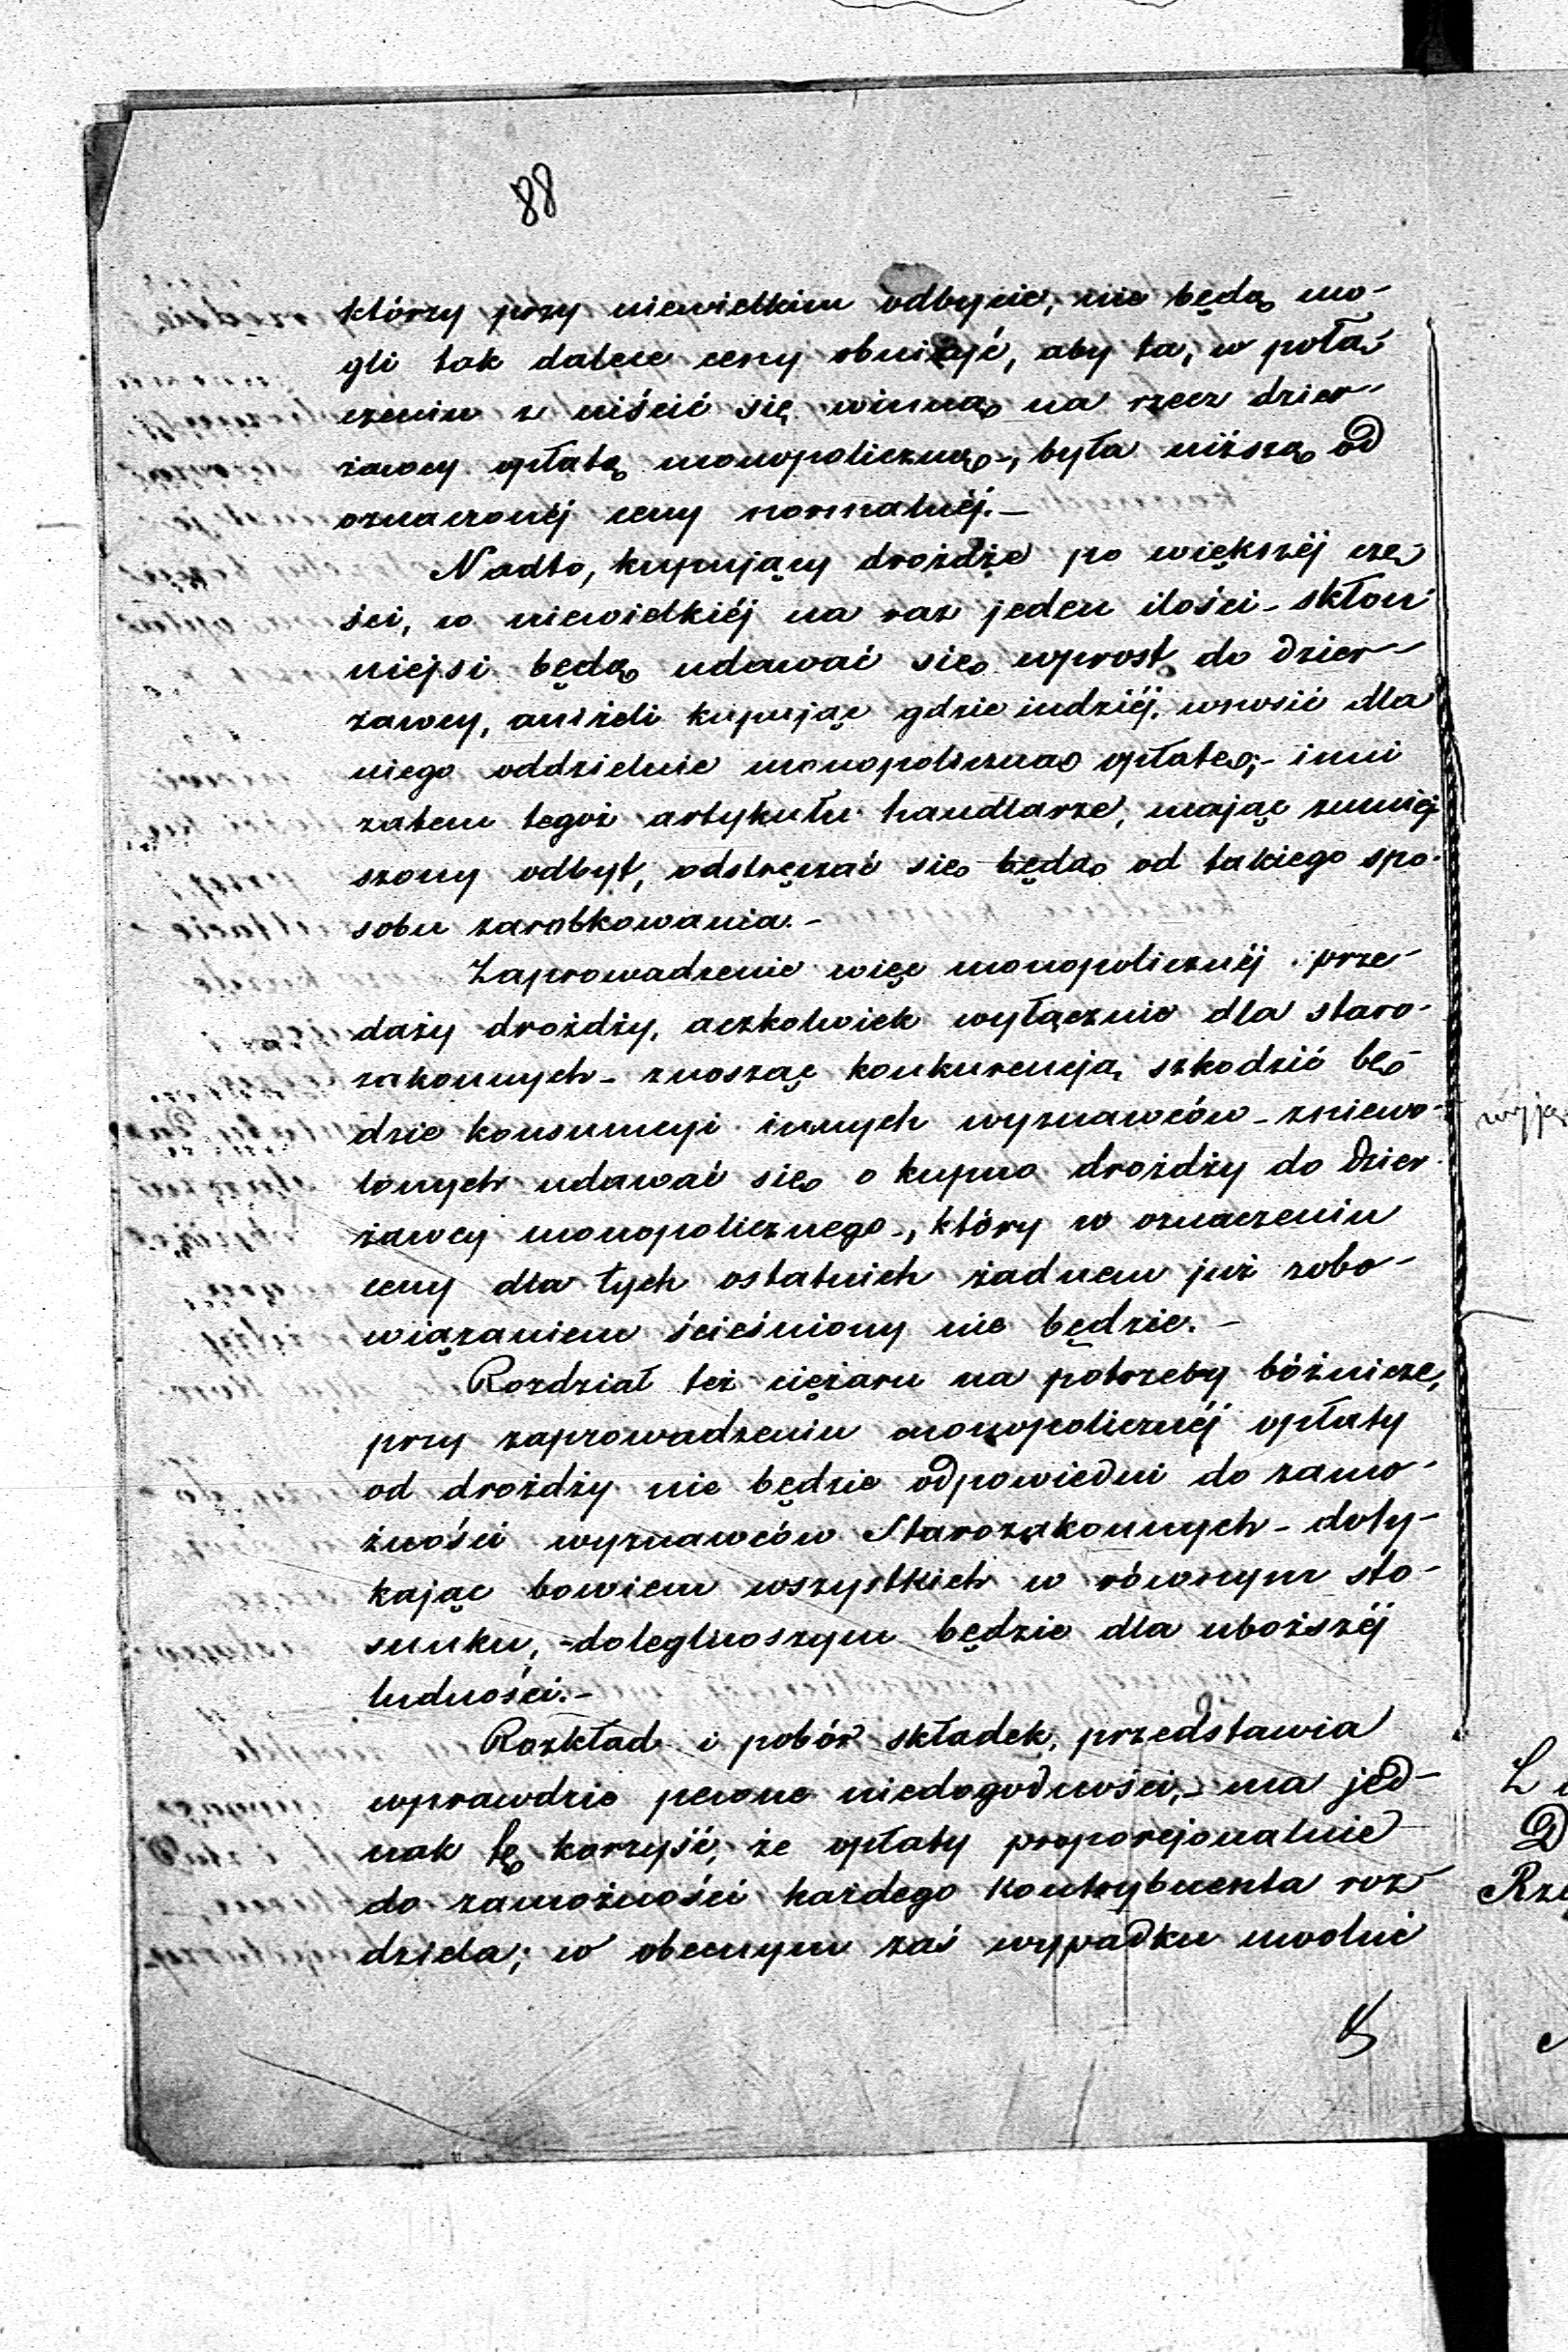 88
którzy przy niewielkim odbycie, nie będą mo-
gli tak dalece ceny obniżyć, aby ta, w połą-
czeniu z uiścić się winną na rzecz dzier-
żawcy opłatą monopoliczną-, była niższą od
oznaczonéj ceny normalnéj.-
Nadto, kupujący drożdże po większéj czę-
ści, w niewielkiéj na raz jeden ilości - skłon-
niejsi będą udawać się wprost do dzier-
żawcy, aniżeli kupując gdzie indziéj, wnosić dla
niego oddzielnie monopoliczną opłatę;- inni
zatem tegoż artykułu handlarze, mając zmniej
szony odbyt, odstręczać się będą od takiego spo-
sobu zarobkowania.-
Zaprowadzenie więc monopolicznéj prze-
daży drożdży, aczkolwiek wyłącznie dla staro-
zakonnych - znosząc konkurencją, szkodzić bę-
dzie konsumcyi innych wyznawców - zniewo-
lonych udawać się o kupno drożdży do dzier-
żawcy monopolicznego-, który w oznaczeniu
ceny dla tych ostatnich żadnem już zobo-
wiązaniem ścieśniony nie będzie.-
Rozdział też ciężaru na potrzeby bóżnicze,
przy zaprowadzeniu monopolicznéj opłaty
od drożdży nie będzie odpowiedni do zamo-
żności wyznawców Starozakonnych - doty-
kając bowiem wszystkich w równym sto-
sunku, - doleglwoszym będzie dla uboższéj
ludności.-
Rozkład i pobór składek, przedstawia
wprawdzie pewne niedogodności,- ma jed-
nak tę korzyść, że opłaty proporcjonalnie
do zamożności każdego kontrybuenta roz-
dziela; w obecnym zaś wypadku uwolnić